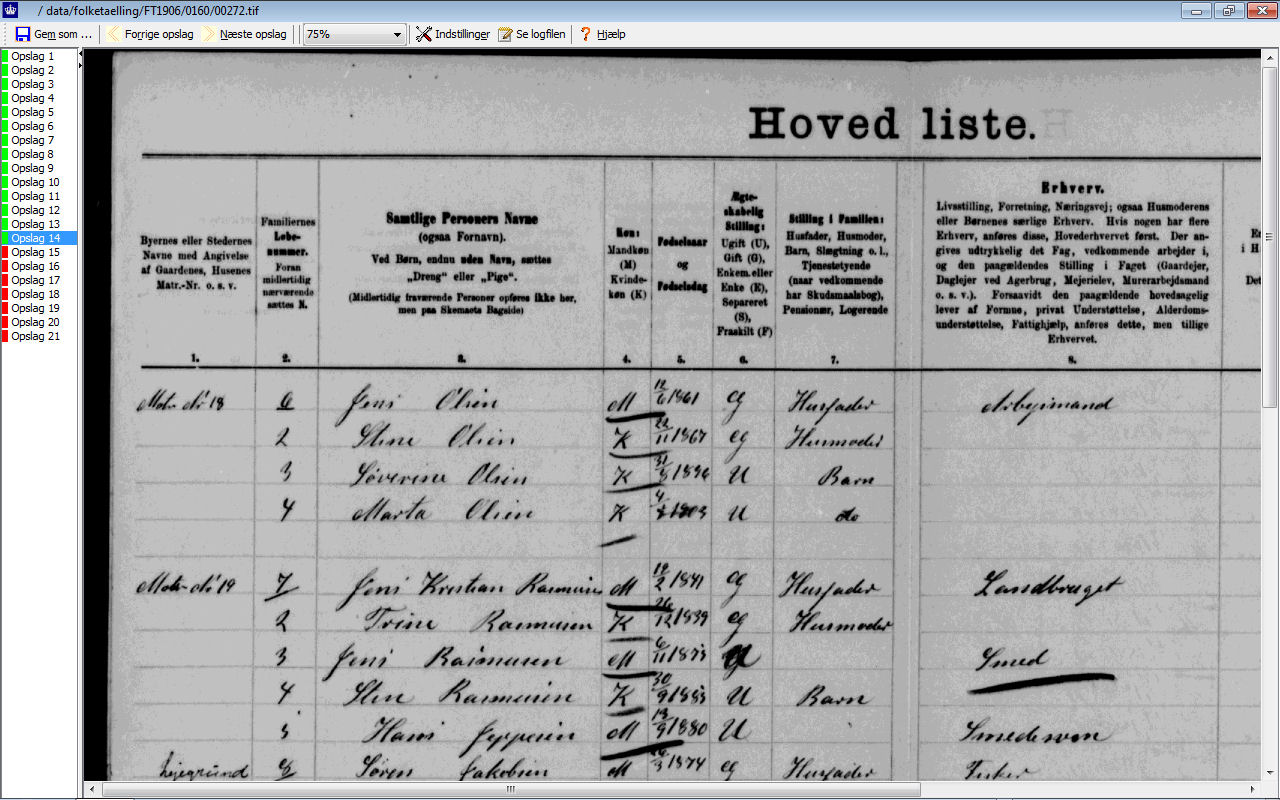 / data/folketaelling/FT1906/0160/00272.tif
Gem som ... Forrige opslag Næste opslag 75% Indstillinger Se logfilen Hjælp
Opslag 1
Opslag 2
Opslag 3
Opslag 4
Opslag 5
Opslag 6
Opslag 7
Opslag 8
Opslag 9
Opslag 10
Opslag 11
Opslag 12
Opslag 13
Opslag 14
Opslag 15
Opslag 16
Opslag 17
Opslag 18
Opslag 19
Opslag 20
Opslag 21
Hoved liste.
Byernes eller Stedernes
Navne med Angivelse
af Gaardenes, Husenes
Matr.-Nr. o. s. v.
1.
Familiernes
Løbe-
nummer.
Foran
midlertidig
nærværende
sættes N.
2.
Samtlige Personers Navne
(ogsaa Fornavn).
Ved Børn, endnu uden Navn, sættes
„Dreng" eller „Pige".
(Midlertidig fraværende Personer opføres ikke her,
men paa Skemaets Bagside)
3.
Køn:
Mandkøn
(M)
Kvinde-
køn (K)
4.
Fødselsaar
og
Fødselsdag
5.
Ægte-
skabelig
Stilling:
Ugift (U),
Gift (G),
Enkem. eller
Enke (E),
Separeret
(S),
Fraskilt (F)
6.
Stilling i Familien:
Husfader, Husmoder,
Barn, Slægtning o. l.,
Tjenestetyende
(naar vedkommende
har Skudsmaalsbog),
Pensionær, Logerende
7.
Erhverv.
Livsstilling, Forretning, Næringsvej; ogsaa Husmoderens
eller Børnenes særlige Erhverv. Hvis nogen har flere
Erhverv, anføres disse, Hovederhvervet først. Der an-
gives udtrykkelig det Fag, vedkommende arbejder i,
og den paagældendes Stilling i Faget (Gaardejer,
Daglejer ved Agerbrug, Mejerielev, Murerarbejdsmand
o. s. v.). Forsaavidt den paagældende hovedsagelig
lever af Formue, privat Understøttelse, Alderdoms-
understøttelse, Fattighjælp, anføres dette, men tillige
Erhvervet.
8.
i H
Det
Matr Nr 18 6 Jens Olsen M 12/6 1861 G Husfader Arbejsmand
2 Stine Olsen K 22/11 1867 G Husmoder
3 Søverine Olsen K 31/8 1896 U Barn
4 Marta Olsen K 4/ 1903 U do
Matr Nr 19 7 Jens Kristian Rasmusen M 12/2 1841 G Husfader Landbruget
2 Trine Rasmusen K 26/12 1839 G Husmoder
3 Jens Rasmusen M 6/11 1873 Smed
4 Sten Rasmusen K 30/9 1883 U Barn
5 Hans Jeppesen M 13/9 1880 U Smedesven
Lejegrund 8 Søren Jakobsen M 1874 G Husfader Fisker